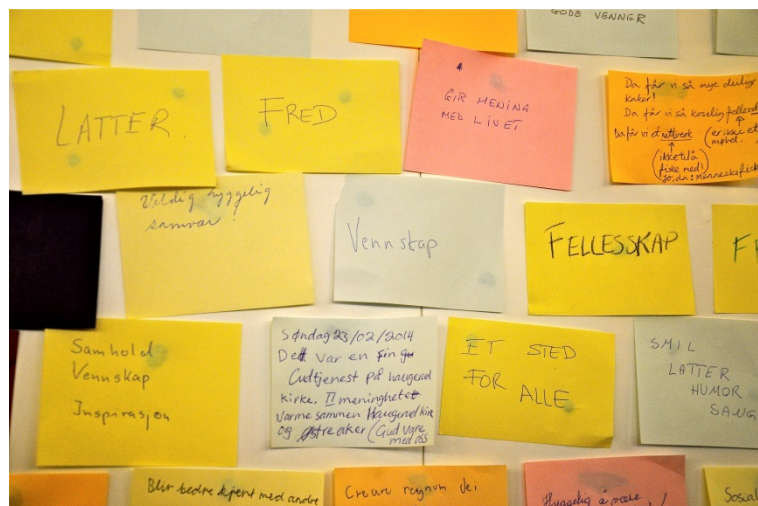 GODE VENNER
LATTER
FRED
GIR MENING
MED LIVET
Da får vi så mye deilige
kaker!
Da får vi så koselig
Da får vi et nettverk
(ikke til å
fiske med!)
Veldig hyggelig
samvær!
Vennskap
FELLESSKAP
Samhold
Vennskap
Inspirasjon
Søndag 23/02/2014
Det var en fin
Gudtjenest på haugerud
kirke. II meninghetet
varme sammen Haugerud
og østre aker (Gud være
med oss
ET STED
FOR ALLE
SMIL
LATTER
HUMOR
SANG
Blir bedre kjent med andre
Creare regnum dei
Hyggelig å være
Sosial